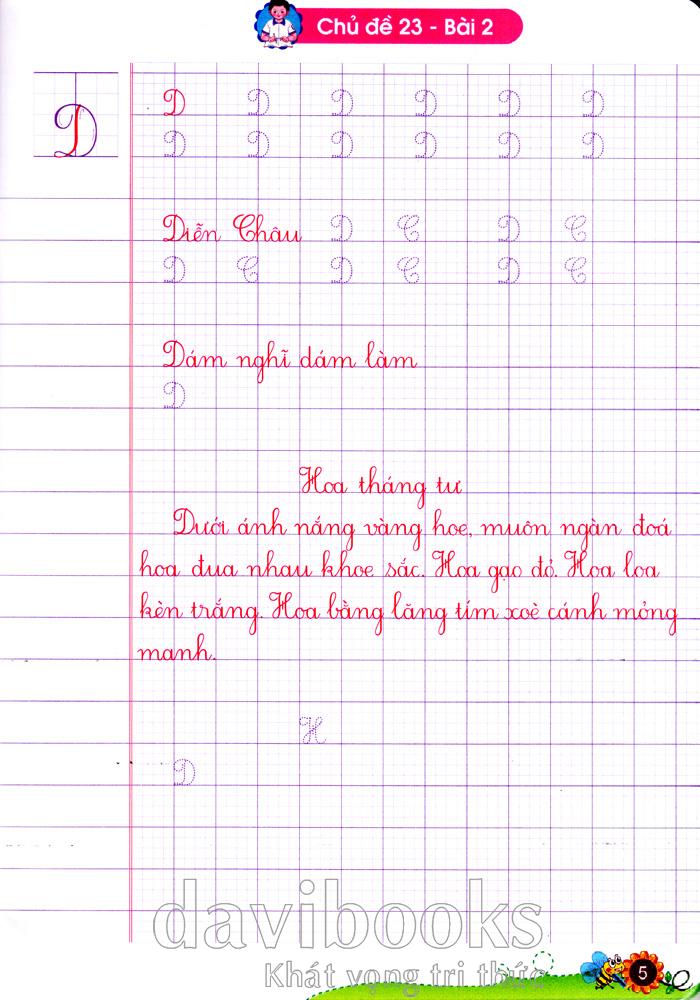 Chủ đề 23 - Bài 2
D
D D D D D D
D D D D D D
Diễn Châu D C D C
D C D C D C
Dám nghĩ dám làm
D
Hoa tháng tư
Dưới ánh nắng vàng hoe, muôn ngàn đoá
hoa đua nhau khoe sắc. Hoa gạo đỏ. Hoa loa
kèn trắng. Hoa bằng lăng tím xoè cánh mỏng
manh.
H
D
davibooks
Khát vọng tri thức
5